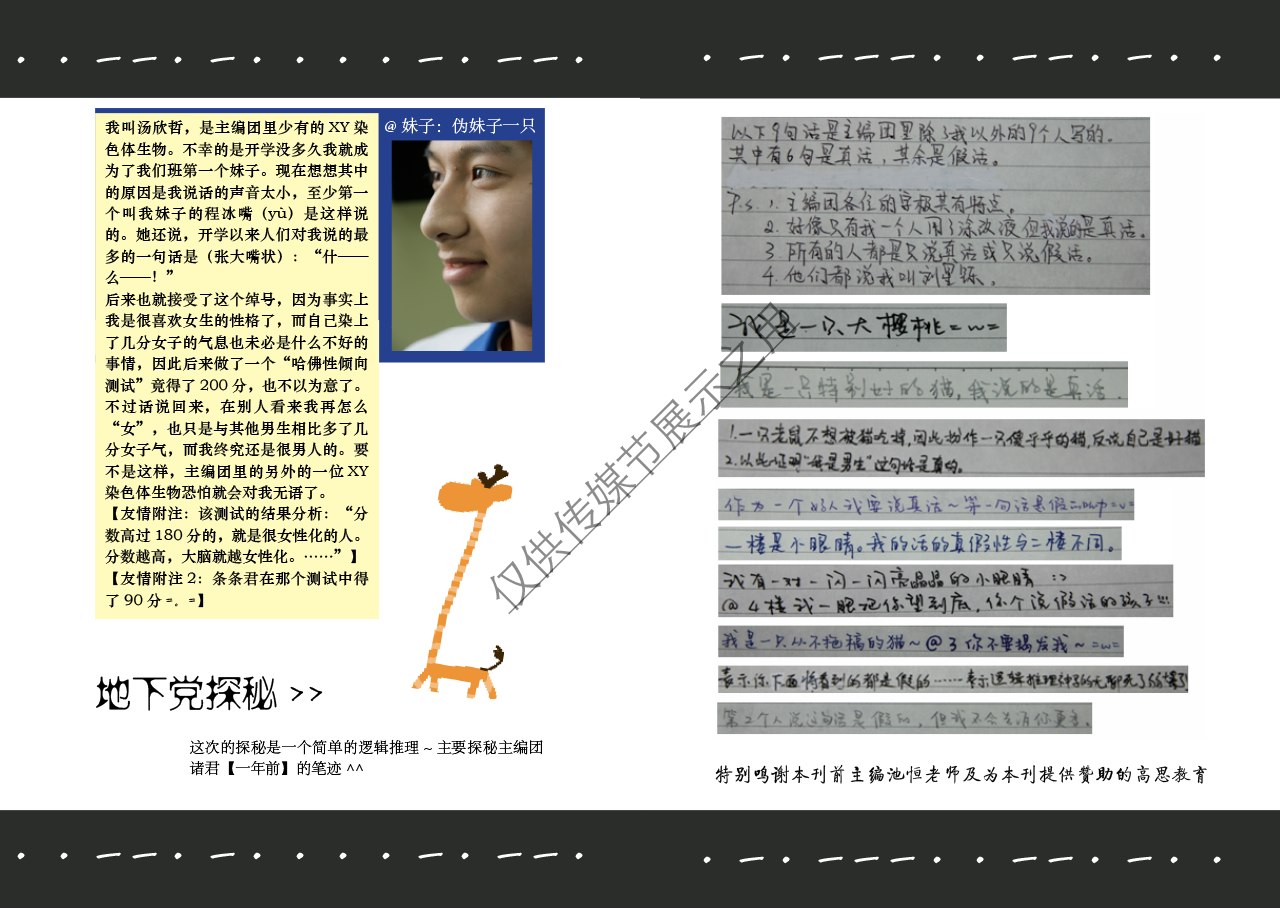 我叫汤欣哲，是主编团里少有的 XY 染
色体生物。不幸的是开学没多久我就成
为了我们班第一个妹子。现在想想其中
的原因是我说话的声音太小，至少第一
个叫我妹子的程冰嘴（yù）是这样说
的。她还说，开学以来人们对我说的最
多的一句话是（张大嘴状）：“什——
么——！”
后来也就接受了这个绰号，因为事实上
我是很喜欢女生的性格了，而自己染上
了几分女子的气息也未必是什么不好的
事情，因此后来做了一个“哈佛性倾向
测试”竟得了 200 分，也不以为意了。
不过话说回来，在别人看来我再怎么
“女”，也只是与其他男生相比多了几
分女子气，而我终究还是很男人的。要
不是这样，主编团里的另外的一位 XY
染色体生物恐怕就会对我无语了。
【友情附注：该测试的结果分析：“分
数高过 180 分的，就是很女性化的人。
分数越高，大脑就越女性化。……”】
【友情附注 2：条条君在那个测试中得
了 90 分 =。=】
@ 妹子：伪妹子一只
地下党探秘 >>
这次的探秘是一个简单的逻辑推理 ~ 主要探秘主编团
诸君【一年前】的笔迹 ^^
以下9句话是主编团里除了我以外的9个人写的。
其中有6句是真话，其余是假话。
P.s. 1. 主编团各位的字极具有特点。
2. 好像只有我一个人用了涂改液 但我说的是真话。
3. 所有的人都是只说真话或只说假话。
4. 他们都说我叫刘星烁.
我是一只大樱桃=w=
我是一只特别好的猫，我说的是真话.
1.一只老鼠不想被猫吃掉,因此扮作一只傻乎乎的猫,反说自己是好猫
2.以此证明"我是男生"这句话是真的。
作为一个好人我要说真话~第一句话是假
一楼是小眼睛。我的话的真假性与二楼不同。
我有一对一闪一闪亮晶晶的小眼睛 :>
@4楼 我一眼把你望到底，你个说假话的孩子!!!
我是一只从不拖稿的猫~@3 你不要揭发我~ =w=
表示你下面将看到的都是假的……表示逻辑推理
第2个人说这句话是假的，但我不会告诉你更多.
特别鸣谢本刊前主编池恒老师及为本刊提供赞助的高思教育
仅供传媒节展示之用